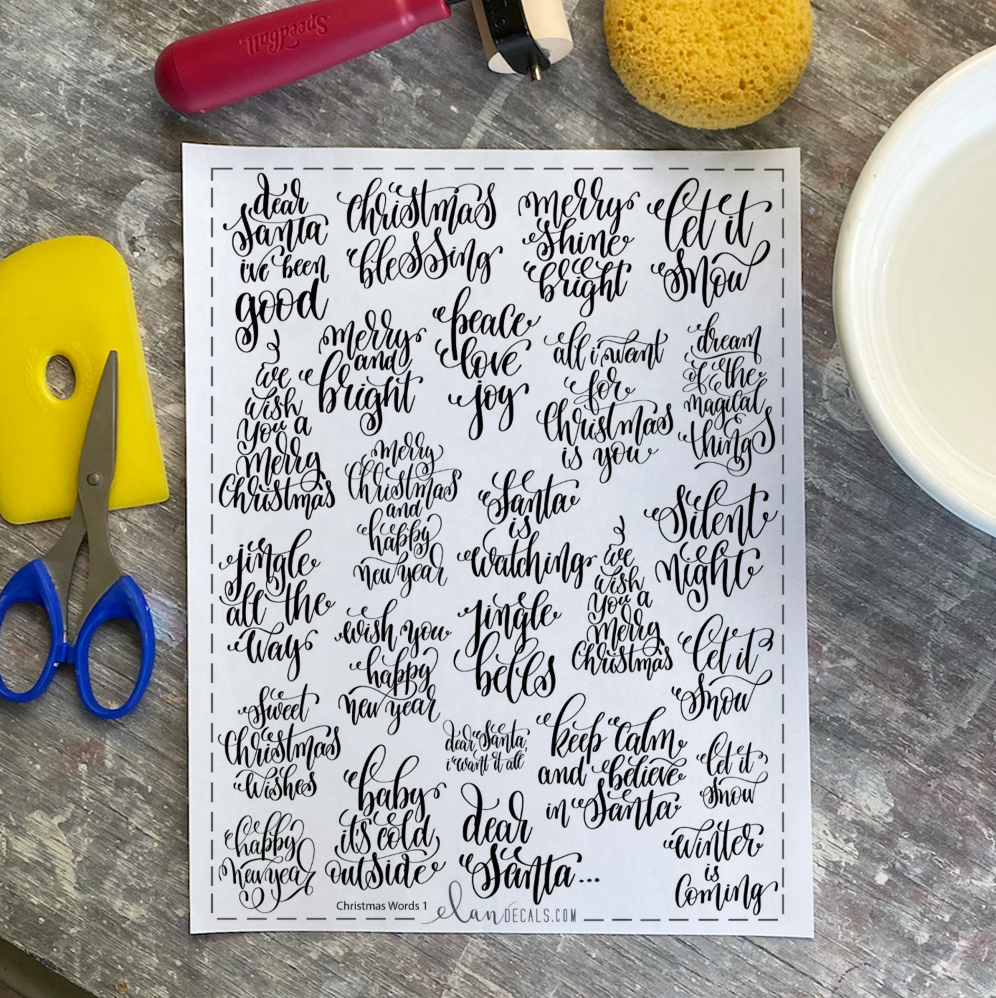 Speedball
dear
Santa
i've been
good
Christmas
blessing
merry
shine
bright
let it
snow
merry
and
bright
peace
love
joy
all i want
for
Christmas
is you
dream
of the
magical
things
we
wish
you a
merry
Christmas
merry
Christmas
and
happy
new year
Santa
is
watching
Silent
night
jingle
all the
way
wish you
happy
new year
jingle
bells
we
wish
you a
merry
Christmas
let it
snow
sweet
Christmas
wishes
dear Santa,
i want it all
keep calm
and believe
in Santa
let it
snow
happy
new year
baby
it's cold
outside
dear
Santa...
winter
is
coming
Christmas Words 1
elanDECALS.COM